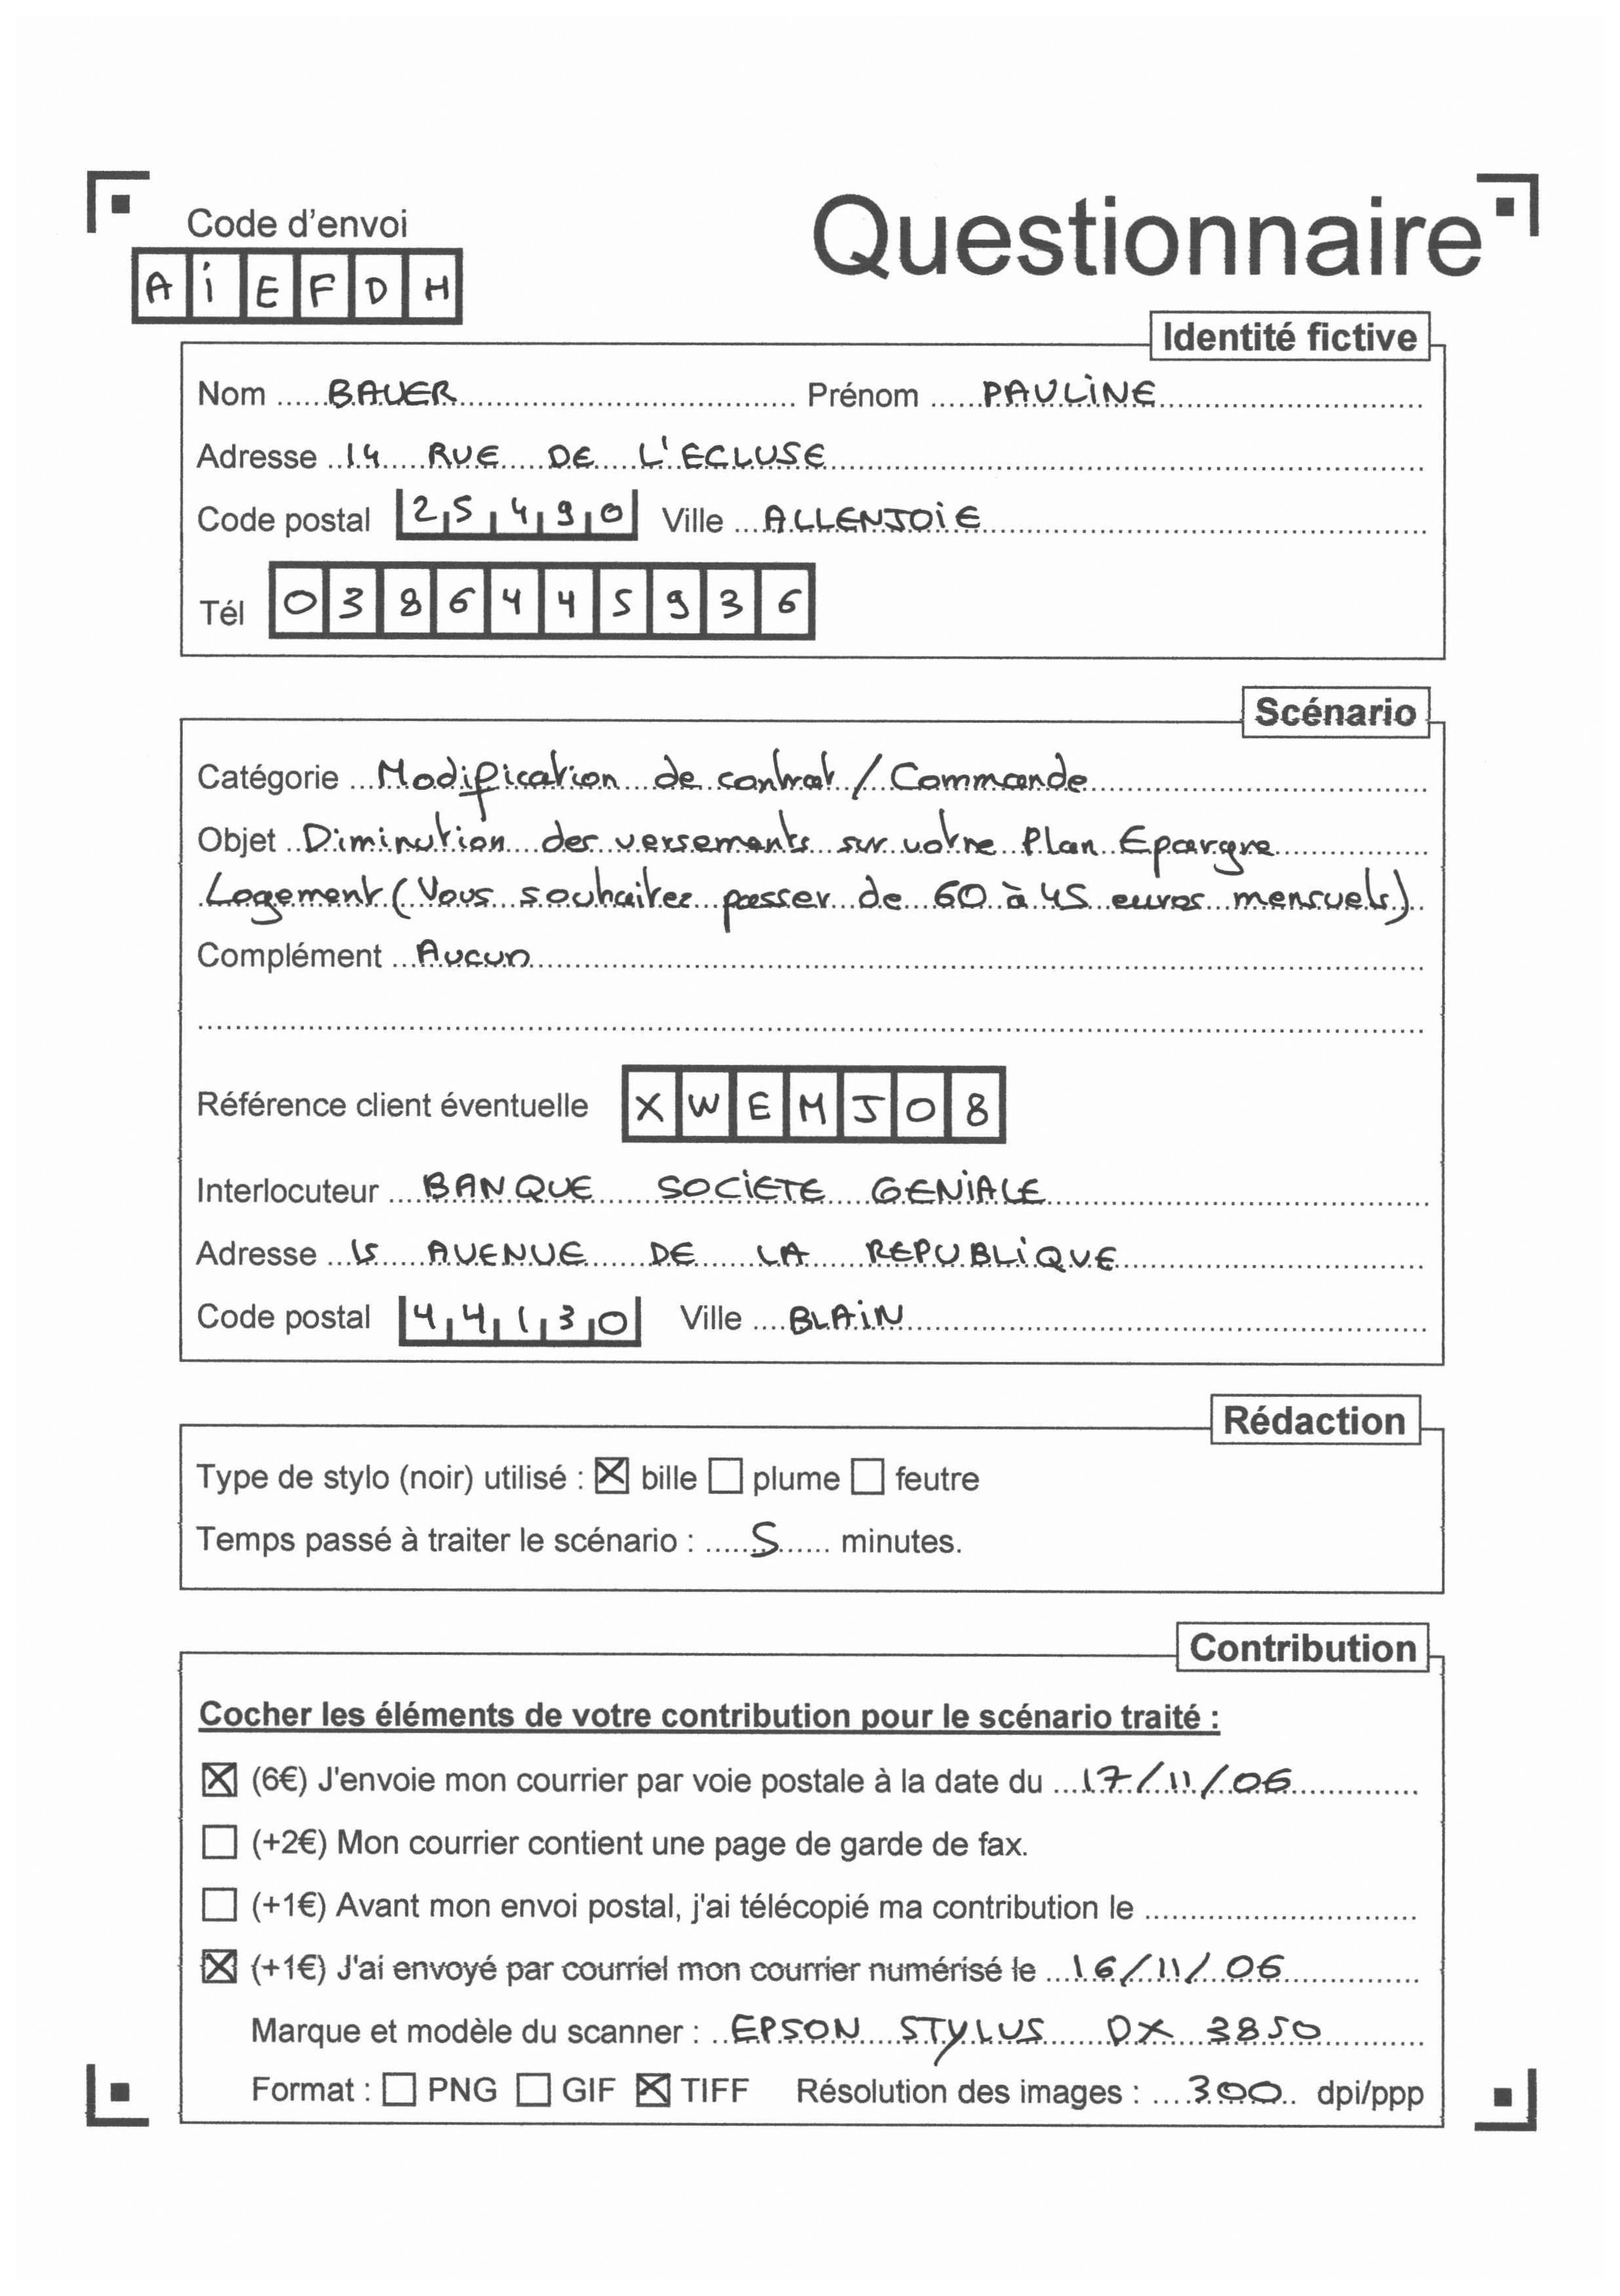 Code d'envoi
Questionnaire
AiEFDH
Identité fictive
Nom BAUER Prénom PAULiNE
Adresse 14 RUE DE L'ECLUSE
Code postal 25490 Ville ALLENJOiE
Tél 0386445936
Scénario
Catégorie Modification de contrat / Commande
Objet Diminution des versements sur votre Plan Epargne
Logement (Vous souhaitez passer de 60 à 45 euros mensuels)
Complément Aucun
Référence client éventuelle XWEMJ08
Interlocuteur BANQUE SOCiETE GENiALE
Adresse 15 AVENUE DE LA REPUBLiQUE
Code postal 44130 Ville BLAiN
Rédaction
Type de stylo (noir) utilisé : ☒ bille ☐ plume ☐ feutre
Temps passé à traiter le scénario : 5 minutes.
Contribution
Cocher les éléments de votre contribution pour le scénario traité :
☒ (6€) J'envoie mon courrier par voie postale à la date du 17/11/06
☐ (+2€) Mon courrier contient une page de garde de fax.
☐ (+1€) Avant mon envoi postal, j'ai télécopié ma contribution le
☒ (+1€) J'ai envoyé par courriel mon courrier numérisé le 16/11/06
Marque et modèle du scanner : EPSON STYLUS DX 3850
Format : ☐ PNG ☐ GIF ☒ TIFF Résolution des images : 300 dpi/ppp